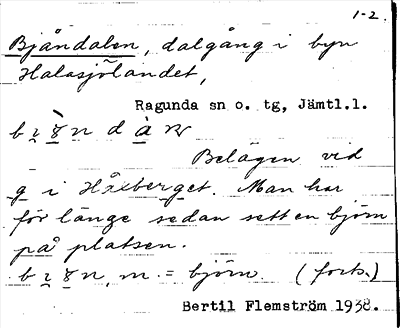 1-2.
Bjåndalen, dalgång i byn
Halasjölandet,
Ragunda sn o. tg, Jämtl.l.
Belägen vid
g i Håxberget. Man har
för länge sedan sett en björn
på platsen.
m. = björn. (forts.)
Bertil Flemström 1938.